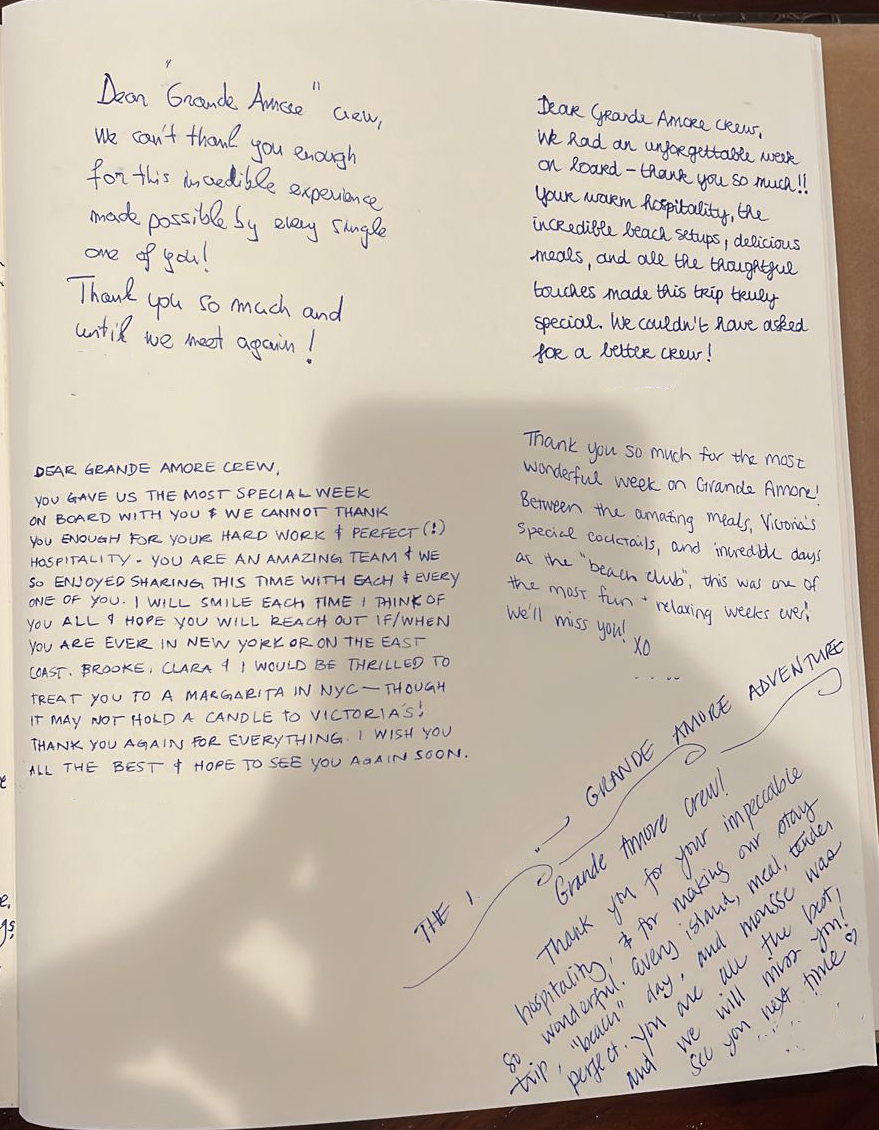 Dear "Grande Amore" crew,
We can't thank you enough
for this incredible experience
made possible by every single
one of you!
Thank you so much and
until we meet again!
Dear Grande Amore crew,
We had an unforgettable week
on board - thank you so much!!
Your warm hospitality, the
incredible beach setups, delicious
meals, and all the thoughtful
touches made this trip truly
special. We couldn't have asked
for a better crew!
DEAR GRANDE AMORE CREW,
YOU GAVE US THE MOST SPECIAL WEEK
ON BOARD WITH YOU & WE CANNOT THANK
YOU ENOUGH FOR YOUR HARD WORK & PERFECT (!)
HOSPITALITY - YOU ARE AN AMAZING TEAM & WE
SO ENJOYED SHARING THIS TIME WITH EACH & EVERY
ONE OF YOU. I WILL SMILE EACH TIME I THINK OF
YOU ALL & HOPE YOU WILL REACH OUT IF/WHEN
YOU ARE EVER IN NEW YORK OR ON THE EAST
COAST. BROOKE, CLARA & I WOULD BE THRILLED TO
TREAT YOU TO A MARGARITA IN NYC - THOUGH
IT MAY NOT HOLD A CANDLE TO VICTORIA'S!
THANK YOU AGAIN FOR EVERYTHING. I WISH YOU
ALL THE BEST & HOPE TO SEE YOU AGAIN SOON.
Thank you so much for the most
wonderful week on Grande Amore!
Between the amazing meals, Victoria's
special cocktails, and incredible days
at the "beach club", this was one of
the most fun + relaxing weeks ever!
We'll miss you!
XO
THE GRANDE AMORE ADVENTURE
Grande Amore Crew!
Thank you for your impeccable
hospitality, & for making our stay
so wonderful. Every island, meal, tender
trip, "beach" day, and mousse was
perfect. You are all the best,
and we will miss you!
See you next time ♡